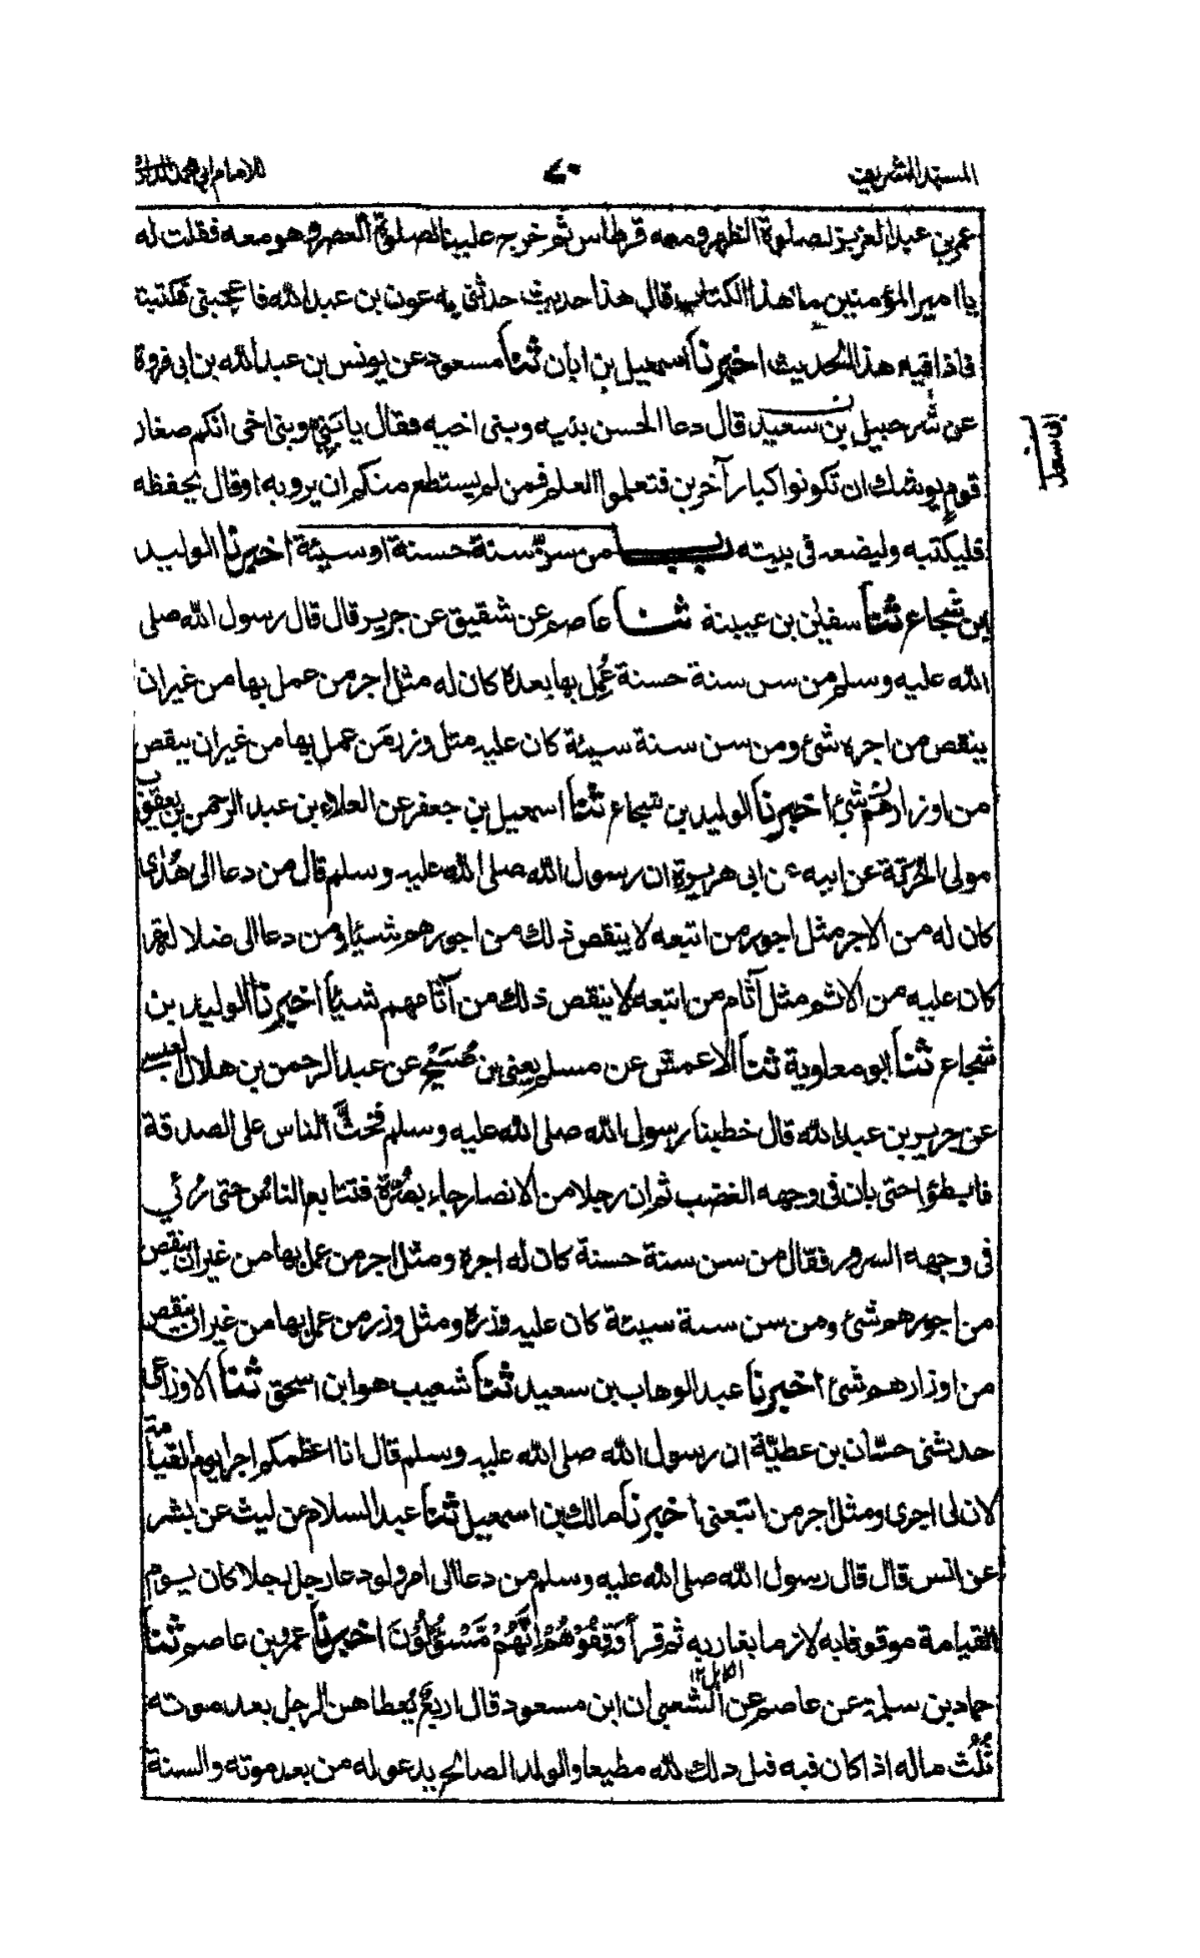 المسند الشريف ٧٠ للامام ابي محمد الدار
عمر بن عبد العزيز لصلوة الظهر ومعه قرطاس ثم خرج علينا لصلوة العصر وهو معه فقلت له
يا امير المؤمنين ما هذا الكتاب قال هذا حديث حدثني به عون بن عبد الله فاعجبني فكتبته
فاذا فيه هذا الحديث اخبرنا اسمعيل بن ابان ثنا مسعود عن يونس بن عبد الله بن ابي فروة
عن شرحبيل بن سعيد قال دعا الحسن بنيه وبني اخيه فقال يا بَنِيَّ وبني اخي انكم صغار
ابن سعد
قوم يوشك ان تكونوا كبار آخرين فتعلموا العلم فمن لم يستطع منكم ان يرويه او قال يحفظه
فليكتبه وليضعه في بيته باب من سنّ سنة حسنة او سيئة اخبرنا الوليد
بن شجاع ثنا سفيٰن بن عيينة ثنا عاصم عن شقيق عن جرير قال قال رسول الله صلى
الله عليه وسلم من سن سنة حسنة عُمِل بها بعده كان له مثل اجر من عمل بها من غير ان
ينقص من اجره شئ ومن سن سنة سيئة كان عليه مثل وزر مَن عمل بها من غير ان ينقص
من اوزارهم شئ اخبرنا الوليد بن شجاع ثنا اسمعيل بن جعفر عن العلاء بن عبد الرحمن بن يعقوب
مولى الحُرَقة عن ابيه عن ابى هريرة ان رسول الله صلى الله عليه وسلم قال من دعا الى هُدٰى
كان له من الاجر مثل اجور من اتبعه لا ينقص ذلك من اجورهم شيئا ومن دعا الى ضلالة
كان عليه من الاثم مثل آثام من اتبعه لا ينقص ذلك من آثامهم شيئاً اخبرنا الوليد بن
شجاع ثنا ابو معاوية ثنا الاعمش عن مسلم يعني بن صُبَيْح عن عبد الرحمن بن هلال العبسي
عن جرير بن عبد الله قال خطبنا رسول الله صلى الله عليه وسلم فحثَّ الناس على الصدقة
فابطؤا حتى بان في وجهه الغضب ثم ان رجلا من الانصار جاء بصُرّة فتتابع الناس حتى رُئي
في وجهه السرور فقال من سن سنة حسنة كان له اجره ومثل اجر من عمل بها من غير ان ينقص
من اجورهم شئ ومن سن سنة سيئة كان عليه وزره ومثل وزر من عمل بها من غير ان ينقص
من اوزارهم شئ اخبرنا عبد الوهاب بن سعيد ثنا شعيب هو ابن اسحق ثنا الاوزاعى
حدثني حسّان بن عطيّة ان رسول الله صلى الله عليه وسلم قال انا اعظمكم اجرا يوم القيامة
لان لى اجرى ومثل اجر من اتبعني اخبرنا مالك بن اسمعيل ثنا عبد السلام عن ليث عن بشر
عن انس قال قال رسول الله صلى الله عليه وسلم من دعا الى امر ولو دعا رجل رجلا كان يوم
القيامة موقوفا به لازما بغاربه ثم قرأ وَقِفُوْهُمْ اِنَّهُمْ مَّسْئُوْلُوْنَ اخبرنا عمرو بن عاصم ثنا
حماد بن سلمة عن عاصم عن الشعبي ان ابن مسعود قال اربعٌ يُعطاهن الرجل بعد موته
ثُلُث ماله اذا كان فيه قبل ذلك لله مطيعا والولد الصالح يدعو له من بعد موته والسنة